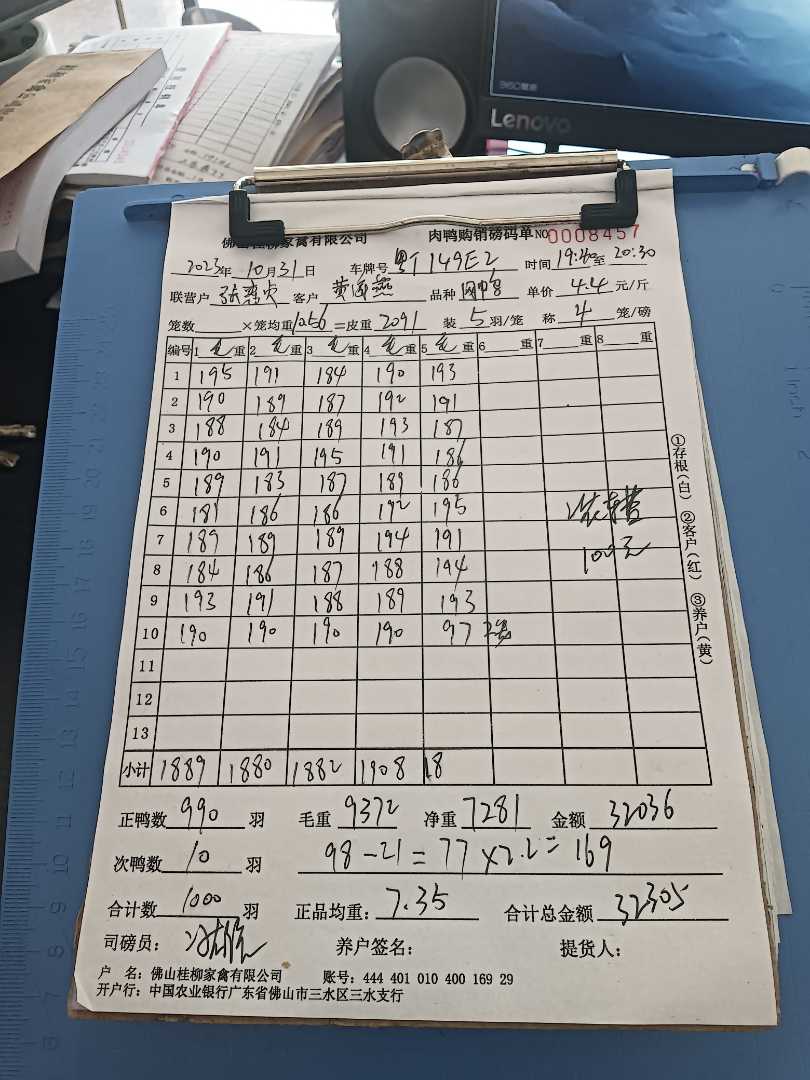 360
Lenovo
佛山桂柳家禽有限公司 肉鸭购销磅码单 NO 0008457
2023年 10月31日 车牌号 粤T149E2 时间 19:40至20:30
联营户 客户 黄连燕 品种 单价 4.4 元/斤
笼数 ×笼均重 10.56 =皮重 2091 装 5 羽/笼 称 4 笼/磅
编号 1 毛重 2 毛重 3 毛重 4 毛重 5 毛重 6 重 7 重 8 重
1 195 191 184 190 193
2 190 189 187 192 191
3 188 184 189 193 187
4 190 191 195 191 186
5 189 183 187 189 186
6 181 186 186 192 195
7 189 189 189 194 191
8 184 186 187 188 194
9 193 191 188 189 193
10 190 190 190 190 97 2笼
11
12
13
小计 1889 1880 1882 1908 18
100元
①存根(白) ②客户(红) ③养户(黄)
正鸭数 990 羽 毛重 9372 净重 7281 金额 32036
次鸭数 10 羽 98-21=77×2.2=169
合计数 1000 羽 正品均重: 7.35 合计总金额 32305
司磅员: 养户签名: 提货人:
户 名: 佛山桂柳家禽有限公司 账号: 444 401 010 400 169 29
开户行: 中国农业银行广东省佛山市三水区三水支行